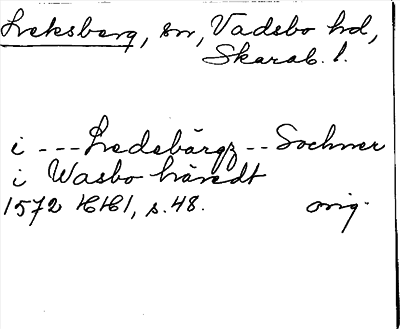 Leksberg, sn, Vadsbo hd,
Skarab. l.
i --- Ledebärgz -- Sochner
i Wasbo häredt
1572 HH1, s. 48. orig.